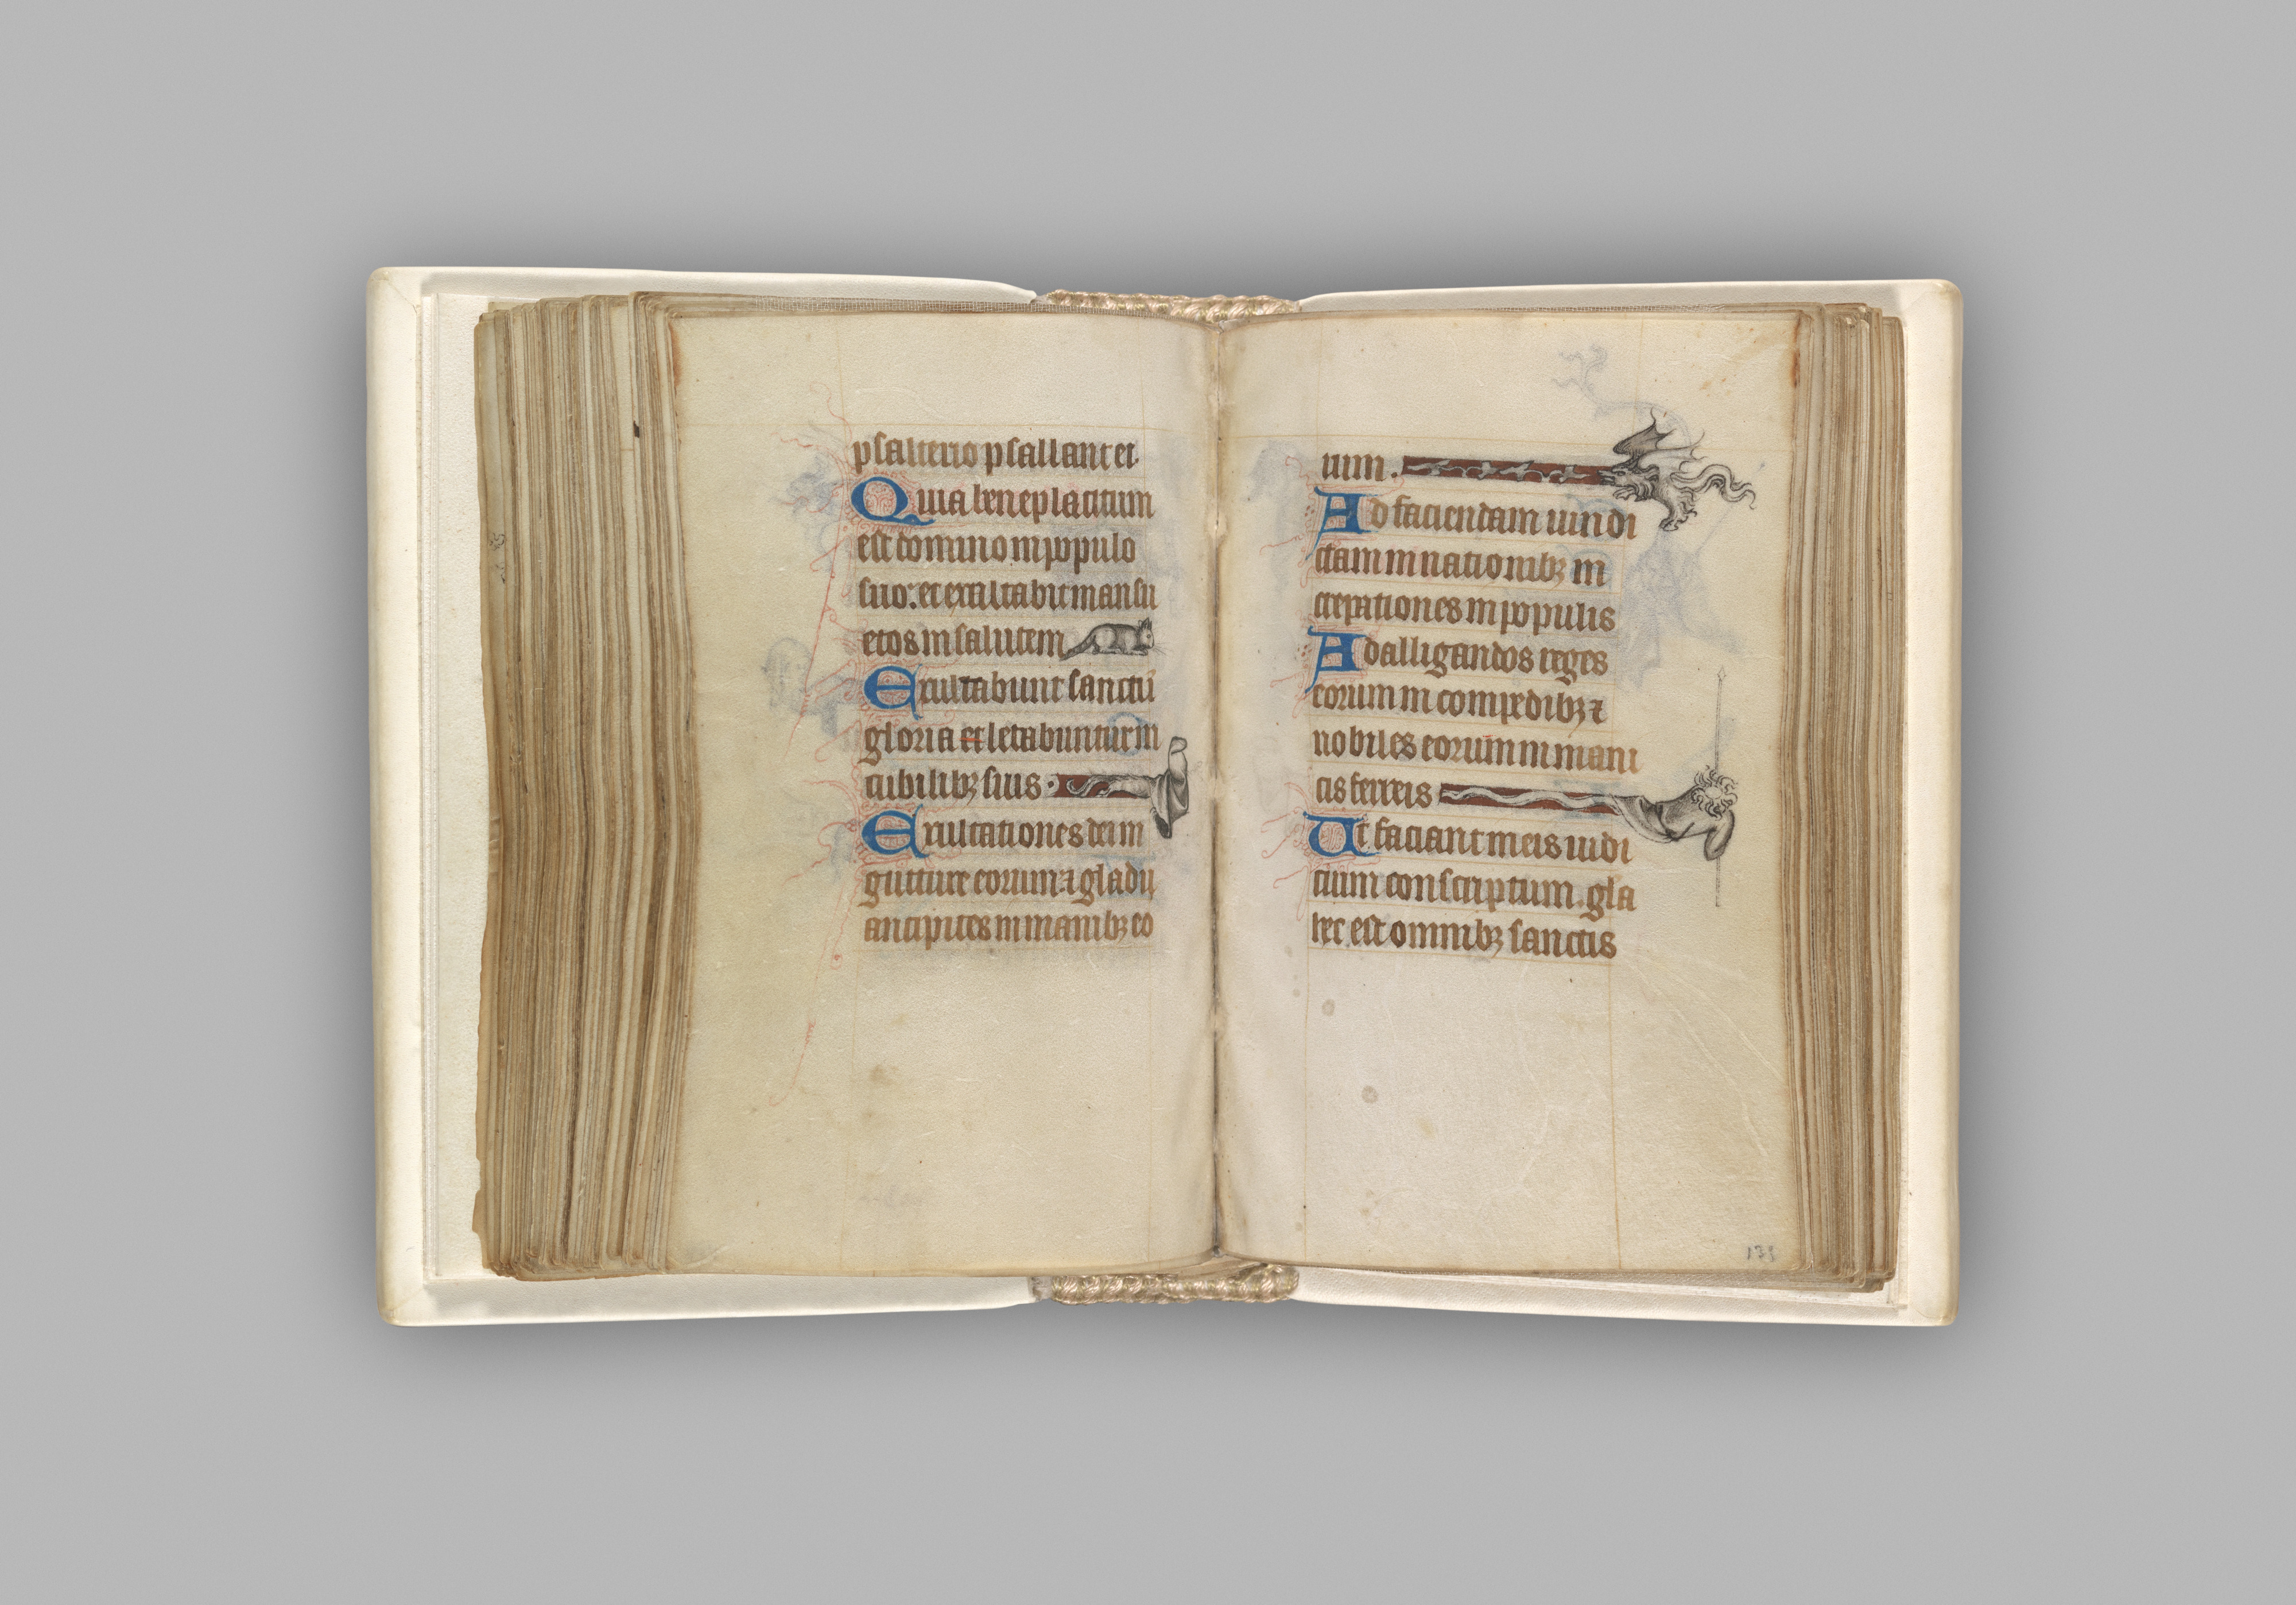 psalterio psallant ei
Quia beneplacitum
est domino in populo
suo: et exaltabit mansu
etos in salutem
Exultabunt sancti ī
gloria et letabuntur in
cubilibꝫ suis.
Exultationes dei in
gutture eorum ⁊ gladii
ancipites in manibꝫ eo
rum.
Ad faciendam uindi
ctam in nationibꝫ in
crepationes in populis
Ad alligandos reges
eorum in compedibꝫ ⁊
nobiles eorum in mani
cis ferreis
Ut faciant in eis iudi
cium conscriptum. gla
hec est omnibꝫ sanctis